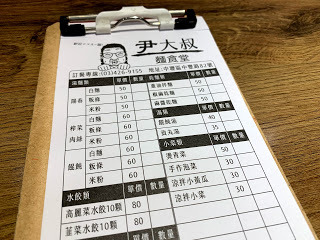 尹大叔
麵食堂
訂餐專線:(03)426-9155 地址:中壢區中豐路82號
湯麵類 單價 數量
乾麵類 單價 數量
陽春 白麵 50
粄條 50
米粉 50
榨菜肉絲 白麵 60
粄條 60
米粉 60
餛飩 白麵 60
粄條 60
米粉 60
水餃類 單價 數量
高麗菜水餃10顆 80
韭菜水餃10顆 80
蔥油拌麵 50
椒麻乾麵 50
麻醬乾麵 50
湯類 單價 數量
餛飩湯 40
貢丸湯 35
小菜類 單價 數量
燙青菜 50
手作泡菜 30
涼拌小黃瓜 30
涼拌小菜 30